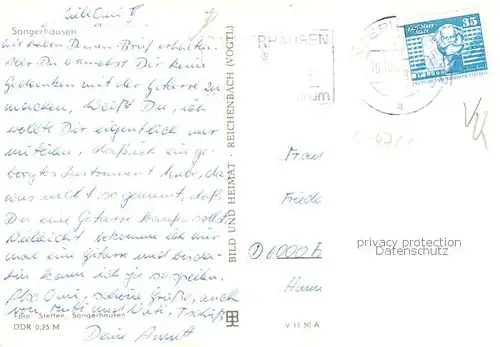 Liebe Omi!
Sangerhausen
wir haben Deinen Brief erhalten.
Aber Du brauchst Dir keine
Gedanken mit der Gitarre zu
machen, weißt Du, ich
wollte Dir eigentlich nur
mitteilen, daß ich ein ge-
borgtes Instrument habe, das
war nicht so gemeint, daß
Du eine Gitarre kaufen sollst.
Vielleicht bekommen ich hier
mal eine Gitarre und bis da-
hin kann ich ja so spielen.
Also Omi, schöne Grüße, auch
von Mutti und Vati, Tschüß
Foto: Steffen, Sangerhausen
DDR 0,25 M
Deine
BILD UND HEIMAT · REICHENBACH (VOGTL)
V 11 50 A
35
Frau
Friede
D 6000 F
Hann
privacy protection
Datenschutz